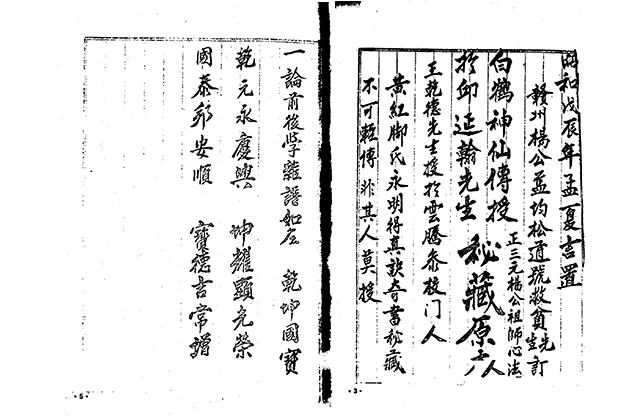 昭和戊辰年孟夏吉置
贛州楊公益均松道號救貧先生訂
正三元楊公祖師心法
白鶴神仙傳授
於邱延翰先生 秘藏原本
王乾德先生授於雲騰 門人
黃紅腳氏永明得真訣奇書秘藏
不可輕傳非其人莫授
·3·
一論前後學 譜如左 乾坤國寶
乾元永慶興 坤耀顯光榮
國泰邦安順 寶德吉常增
·5·